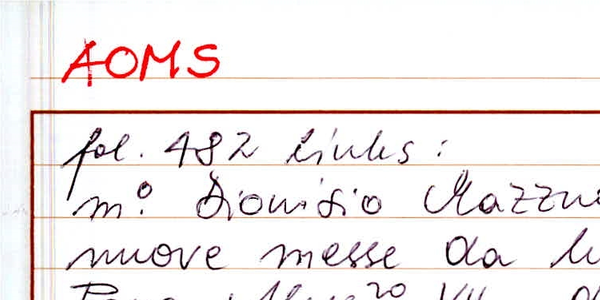 AOMS
fol. 482 links:
m.º Dionisio Mazzu
nuove messe da lu
VII